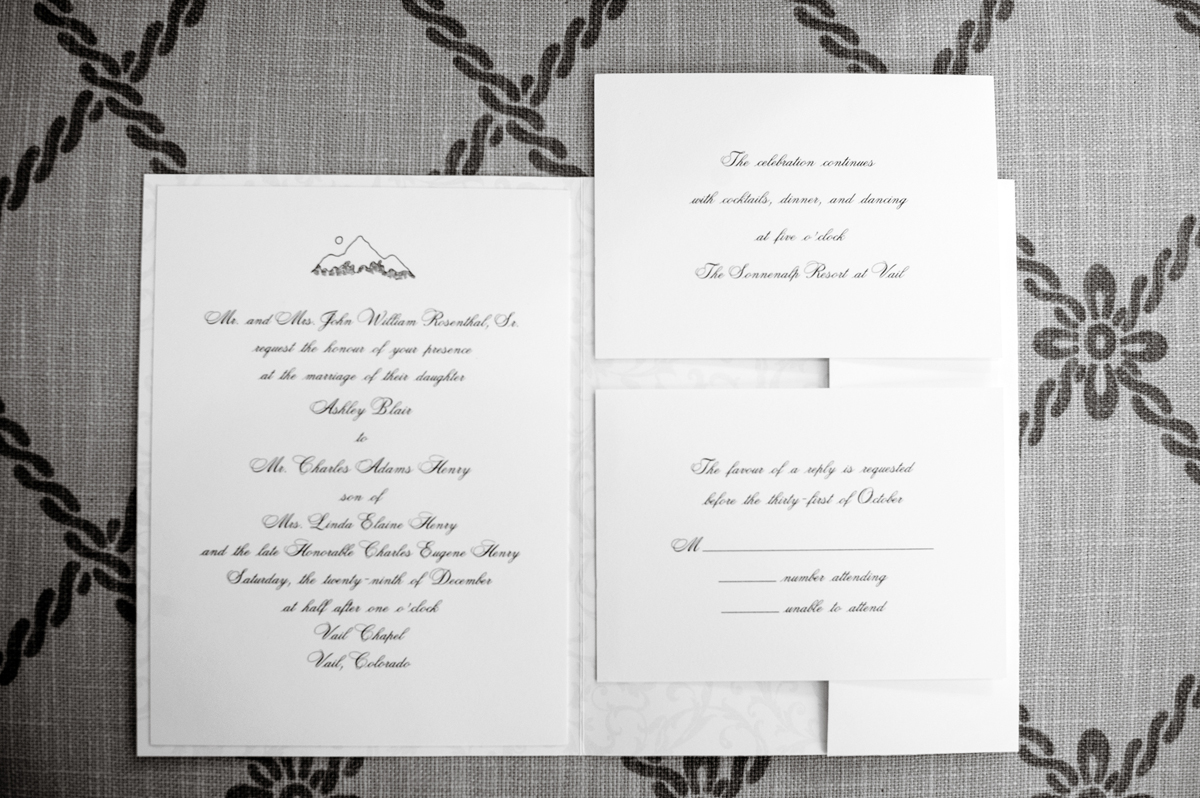 Mr. and Mrs. John William Rosenthal, Sr.
request the honour of your presence
at the marriage of their daughter
Ashley Blair
to
Mr. Charles Adams Henry
son of
Mrs. Linda Elaine Henry
and the late Honorable Charles Eugene Henry
Saturday, the twenty-ninth of December
at half after one o'clock
Vail Chapel
Vail, Colorado
The celebration continues
with cocktails, dinner, and dancing
at five o'clock
The Sonnenalp Resort at Vail
The favour of a reply is requested
before the thirty-first of October
M
number attending
unable to attend